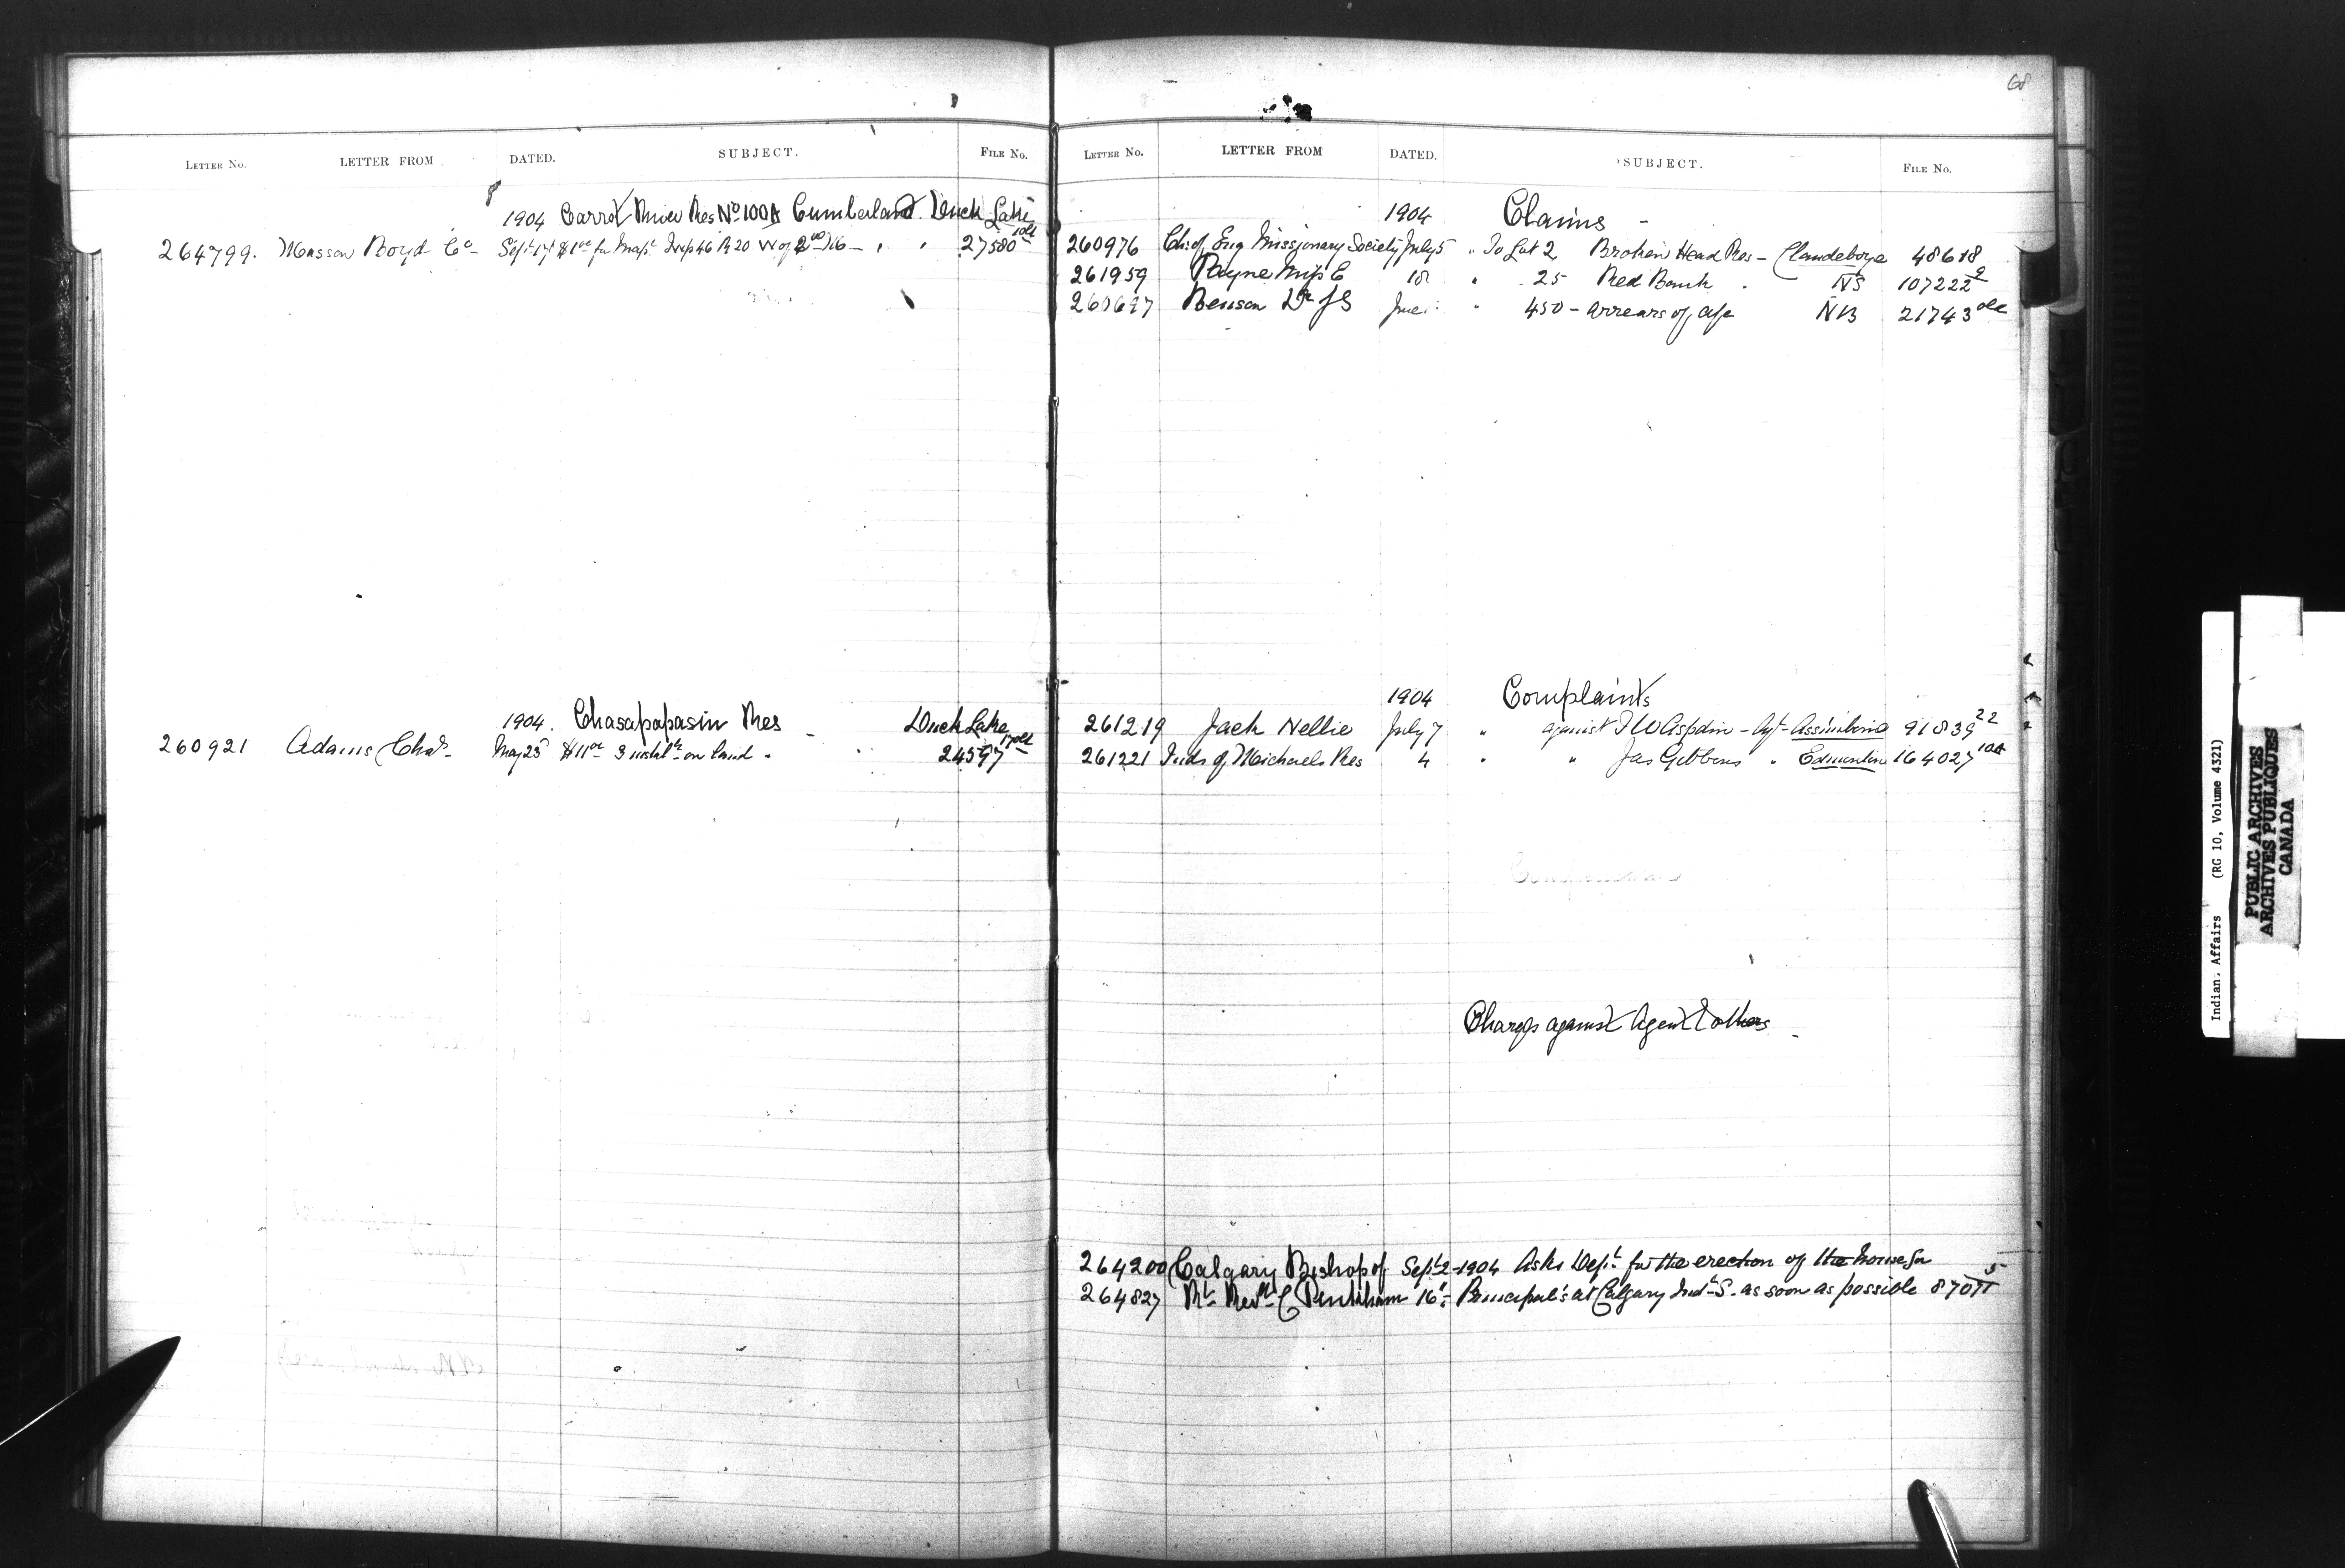 68
LETTER NO. LETTER FROM. DATED. SUBJECT. FILE No.
1904 Carrot River Res No 100A Cumberland. Duck Lake
264799. Musson Boyd Co - Sept 17 $1.00 for Map. Twp 46 R 20 W of 2nd 16 - " " 27580
1904. Chasapapasin Res - Duck Lake
260921 Adams Chas - May 25 $11.00 3 instalt on land " " 24597
LETTER NO. LETTER FROM DATED. SUBJECT. FILE No.
1904 Claims -
260976 Ch: of Eng Missionary Society July 5 " To Lot 2 Broken Head Res - Clandeboye 48618
261959 Payne Miss E 18 " 25 Red Bank " NS 107222
260697 Benson Dr J S June " 450 - arrears of a/c NB 21743
1904 Complaints
261219 Jack Nellie July 7 " against T W Aspdin - Agt - Assiniboine 91839 22
261221 Inds of Michaels Res 4 " " Jas Gibbons " Edmonton 164027 10A
Charges against Agent & others -
264200 Calgary Bishop of Sept 2 - 1904 Asks Dept for the erection of the house for
264827 Rt Revd C Pinkham 16 " Principal's at Calgary Ind - S. as soon as possible 87071 5
Indian Affairs (RG 10, Volume 4321)
PUBLIC ARCHIVES
ARCHIVES PUBLIQUES
CANADA